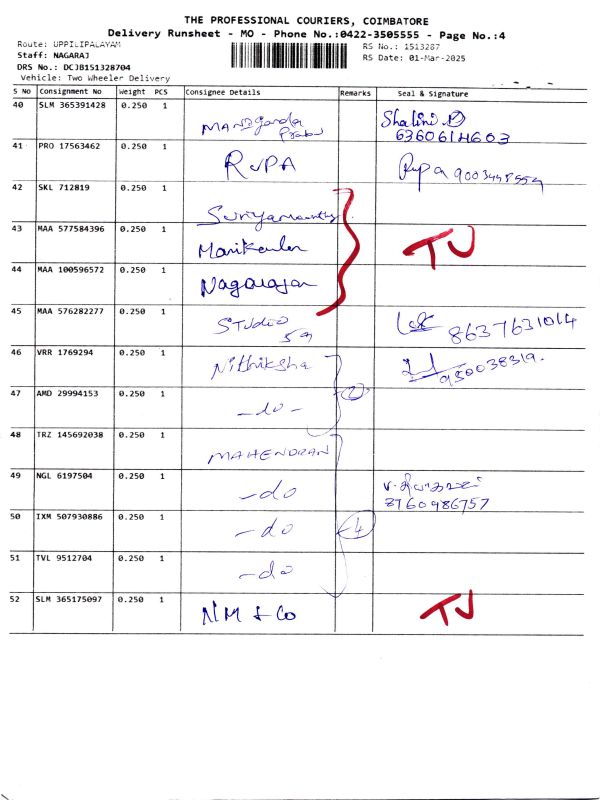 THE PROFESSIONAL COURIERS, COIMBATORE
Delivery Runsheet - MO - Phone No.:0422-3505555 - Page No.:4
Route: UPPILIPALAYAM
RS No.: 1513287
Staff: NAGARAJ
RS Date: 01-Mar-2025
DRS No.: DCJB151328704
Vehicle: Two Wheeler Delivery
S No Consignment No Weight PCS Consignee Details Remarks Seal & Signature
40 SLM 365391428 0.250 1 Shalini
Prabu 6360614603
41 PRO 17563462 0.250 1 RUPA Rupa
42 SKL 712819 0.250 1
43 MAA 577584396 0.250 1 TJ
44 MAA 100596572 0.250 1 Nagarajan
45 MAA 576282277 0.250 1 STUdio 8637631014
46 VRR 1769294 0.250 1 Nithiksha 950038319.
47 AMD 29994153 0.250 1 -do- 2
48 TRZ 145692038 0.250 1 MAHENDRAN
49 NGL 6197504 0.250 1 -do 8760986757
50 IXM 507930886 0.250 1 -do 4
51 TVL 9512704 0.250 1 -do
52 SLM 365175097 0.250 1 NM & Co TJ